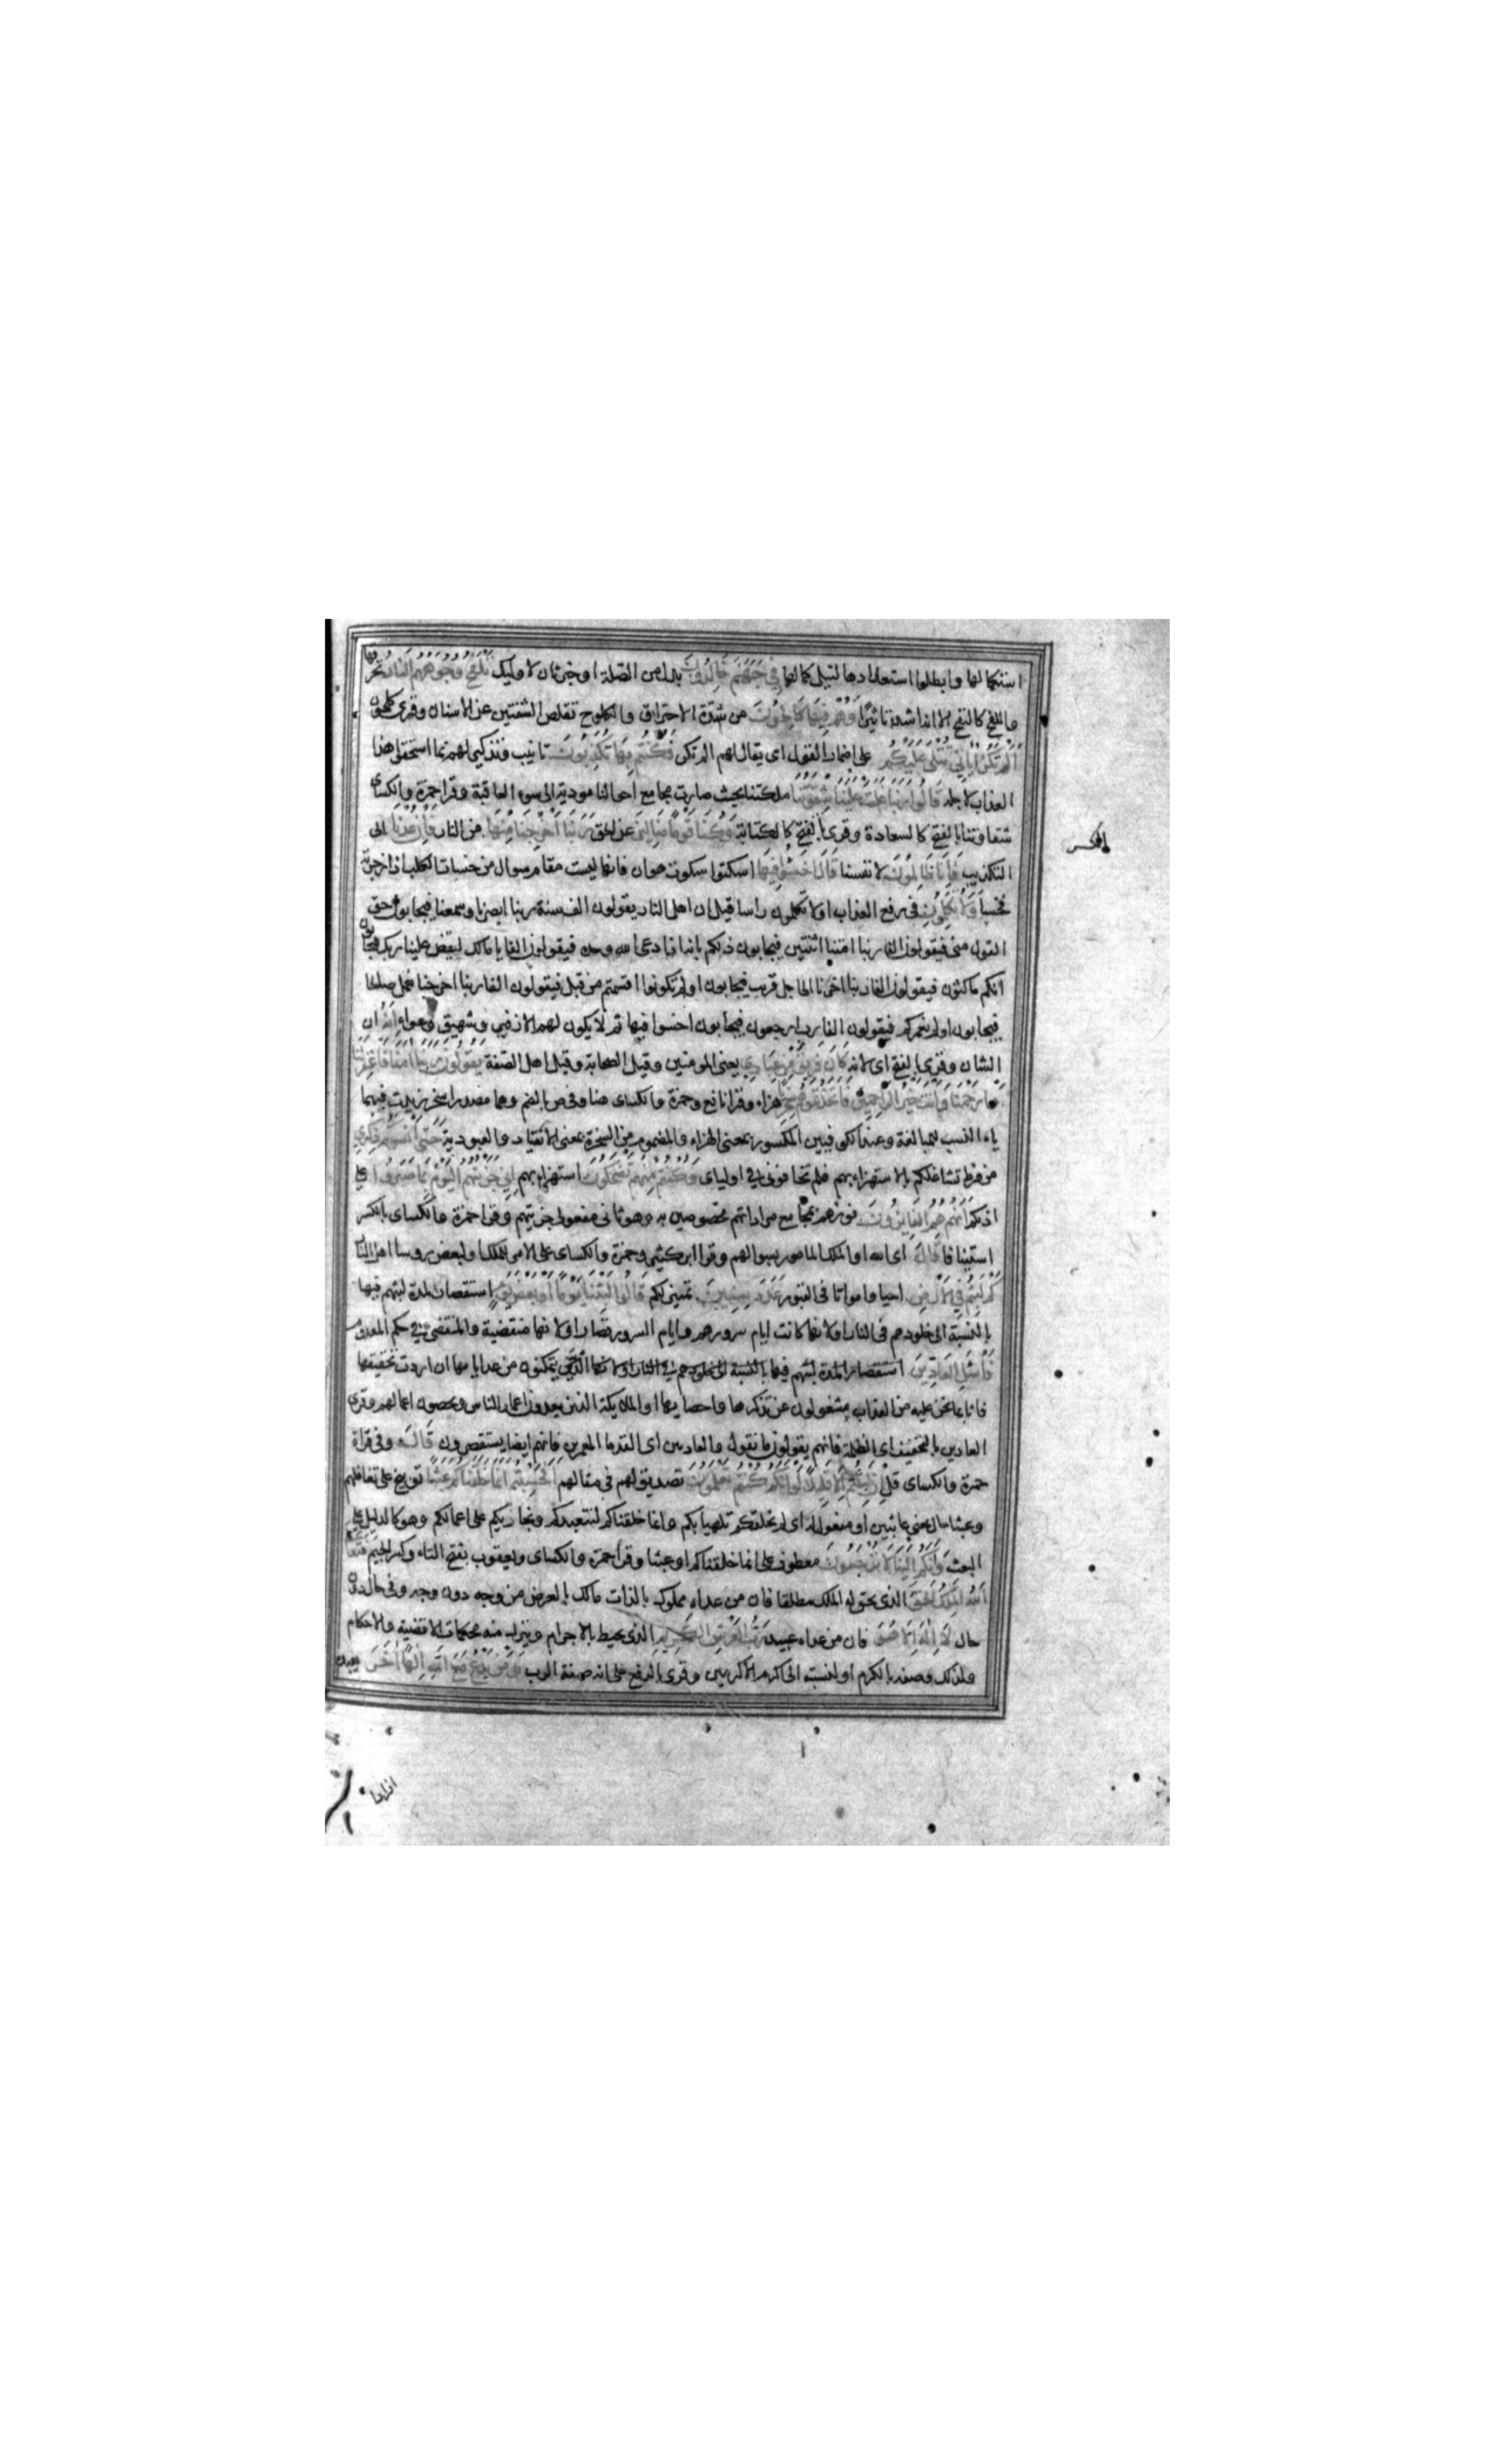 استكمالها وابطلوا استعدادها لنيل كمالها فِي جَهَنَّمَ خَالِدُونَ بدل من الصلة او خبر ثان لاوليك تَلْفَحُ وُجُوهَهُمُ النَّارُ تحرقها
واللفح كالنفح الا انه اشد تاثيرًا وَهُمْ فِيهَا كَالِحُونَ من شدّة الاحتراق والكلوح تقلص الشفتين عن الاسنان وقرئ كلحون
أَلَمْ تَكُنْ آيَاتِي تُتْلَى عَلَيْكُمْ على اضمار القول اى يقال لهم الم تكن فَكُنْتُمْ بِهَا تُكَذِّبُونَ تانيب وتذكير لهم بما استحقوا هذا
العذاب لاجله قَالُوا رَبَّنَا غَلَبَتْ عَلَيْنَا شِقْوَتُنَا ملكتنا بحيث صارت مجامع احوالنا مودية الى سوء العاقبة وقرا حمزة والكساى
شقاوتنا بالفتح كالسعادة وقرى بالفتح كالكتابة وَكُنَّا قَوْمًا ضَالِّينَ عن الحق رَبَّنَا أَخْرِجْنَا مِنْهَا من النار فَإِنْ عُدْنَا الى
التكذيب فَإِنَّا ظَالِمُونَ لانفسنا قَالَ اخْسَئُوا فِيهَا اسكتوا سكوت هوان فانها ليست مقام سوال من خسات الكلب اذا زجرته
فخسأ وَلَا تُكَلِّمُونِ فى رفع العذاب او لا تكلمون راسا قيل ان اهل النار يقولون الف سنة ربنا ابصرنا وسمعنا فيجابون حق
القول منى فيقولون الفا ربنا امتنا اثنتين فيجابون ذلكم بانه اذا دعى الله وحده فيقولون الفا يا مالك ليقض علينا ربك فيجابون
انكم ماكثون فيقولون الفا ربنا اخرنا الى اجل قريب فيجابون اولم تكونوا اقسمتم من قبل فيقولون الفا ربنا اخرجنا نعمل صلحا
فيجابون اولم نعمركم فيقولون الفا رب ارجعون فيجابون اخسوا فيها ثم لا يكون لهم الا زفير وشهيق وعواء إِنَّهُ ان
الشان وقرى بالفتح اى لانه كَانَ فَرِيقٌ مِنْ عِبَادِي يعنى المومنين وقيل الصحابة وقيل اهل الصفة يَقُولُونَ رَبَّنَا آمَنَّا فَاغْفِرْ لَنَا
وَارْحَمْنَا وَأَنْتَ خَيْرُ الرَّاحِمِينَ فَاتَّخَذْتُمُوهُمْ سِخْرِيًّا هزاء وقرا نافع وحمزة والكساى هنا وفى ص بالضم وهما مصدرا سخر زيدت فيهما
ياء النسب للمبالغة وعند الكوفيين المكسور بمعنى الهزاء والمضموم من السخرة بمعنى الانقياد والعبودية حَتَّى أَنْسَوْكُمْ ذِكْرِي
من فرط تشاغلكم بالاستهزاء بهم فلم تخافونى فى اولياى وَكُنْتُمْ مِنْهُمْ تَضْحَكُونَ استهزاء بهم إِنِّي جَزَيْتُهُمُ الْيَوْمَ بِمَا صَبَرُوا على
اذيكم أَنَّهُمْ هُمُ الْفَائِزُونَ فوزهم بمجامع مراداتهم مخصوصين به وهو ثانى مفعولى جزيتهم وقرا حمزة والكساى بالكسر
استينافا قَالَ اى الله او الملك المامور بسوالهم وقرا ابن كثير وحمزة والكساى على الامر للملك او لبعض روسا اهل النار
كَمْ لَبِثْتُمْ فِي الْأَرْضِ احياء وامواتا فى القبور عَدَدَ سِنِينَ تمييز لكم قَالُوا لَبِثْنَا يَوْمًا أَوْ بَعْضَ يَوْمٍ استقصارا لمدة لبثهم فيها
بالنسبة الى خلودهم فى النار او لانها كانت ايام سرورهم وايام السرور قصار او لانها منقضية والمنقضى فى حكم المعدوم
فَاسْأَلِ الْعَادِّينَ استقصارا لمدة لبثهم فيها بالنسبة الى خلودهم فى النار او لانها الذين يتمكنون من عد ايامها ان اردت تحقيقها
فانا بما نحن عليه من العذاب مشغولون عن تذكرها واحصايها او الملايكة الذين يعدون اعمار الناس ويحصون اعمالهم وقرى
العادين بالتخفيف اى الظلمة فانهم يقولون ما نقول والعاديين اى القدما المعمرين فانهم ايضا يستقصرون قَالَ وفى قراة
حمزة والكساى قل إِنْ لَبِثْتُمْ إِلَّا قَلِيلًا لَوْ أَنَّكُمْ كُنْتُمْ تَعْلَمُونَ تصديق لهم فى مقالهم أَفَحَسِبْتُمْ أَنَّمَا خَلَقْنَاكُمْ عَبَثًا توبيخ على تغافلهم
وعبثا حال بمعنى عابثين او مفعول له اى لم نخلقكم تلهيا بكم وانما خلقناكم لنتعبدكم ونجازيكم على اعمالكم وهو كالدليل على
البعث وَأَنَّكُمْ إِلَيْنَا لَا تُرْجَعُونَ معطوف على انما خلقناكم او عبثا وقرا حمزة والكساى ويعقوب بفتح التاء وكسر الجيم فَتَعَالَى
اللَّهُ الْمَلِكُ الْحَقُّ الذى يحق له الملك مطلقا فان من عداه مملوك بالذات مالك بالعرض من وجه دون وجه وفى حال دون
حال لَا إِلَهَ إِلَّا هُوَ فان من عداه عبيد رَبُّ الْعَرْشِ الْكَرِيمِ الذى يحيط بالاجرام وينزل منه محكمات الاقضية والاحكام
ولذلك وصفه بالكرم او لنسبته الى اكرم الاكرمين وقرى بالرفع على انه صفة الرب وَمَنْ يَدْعُ مَعَ اللَّهِ إِلَهًا آخَرَ يعبده